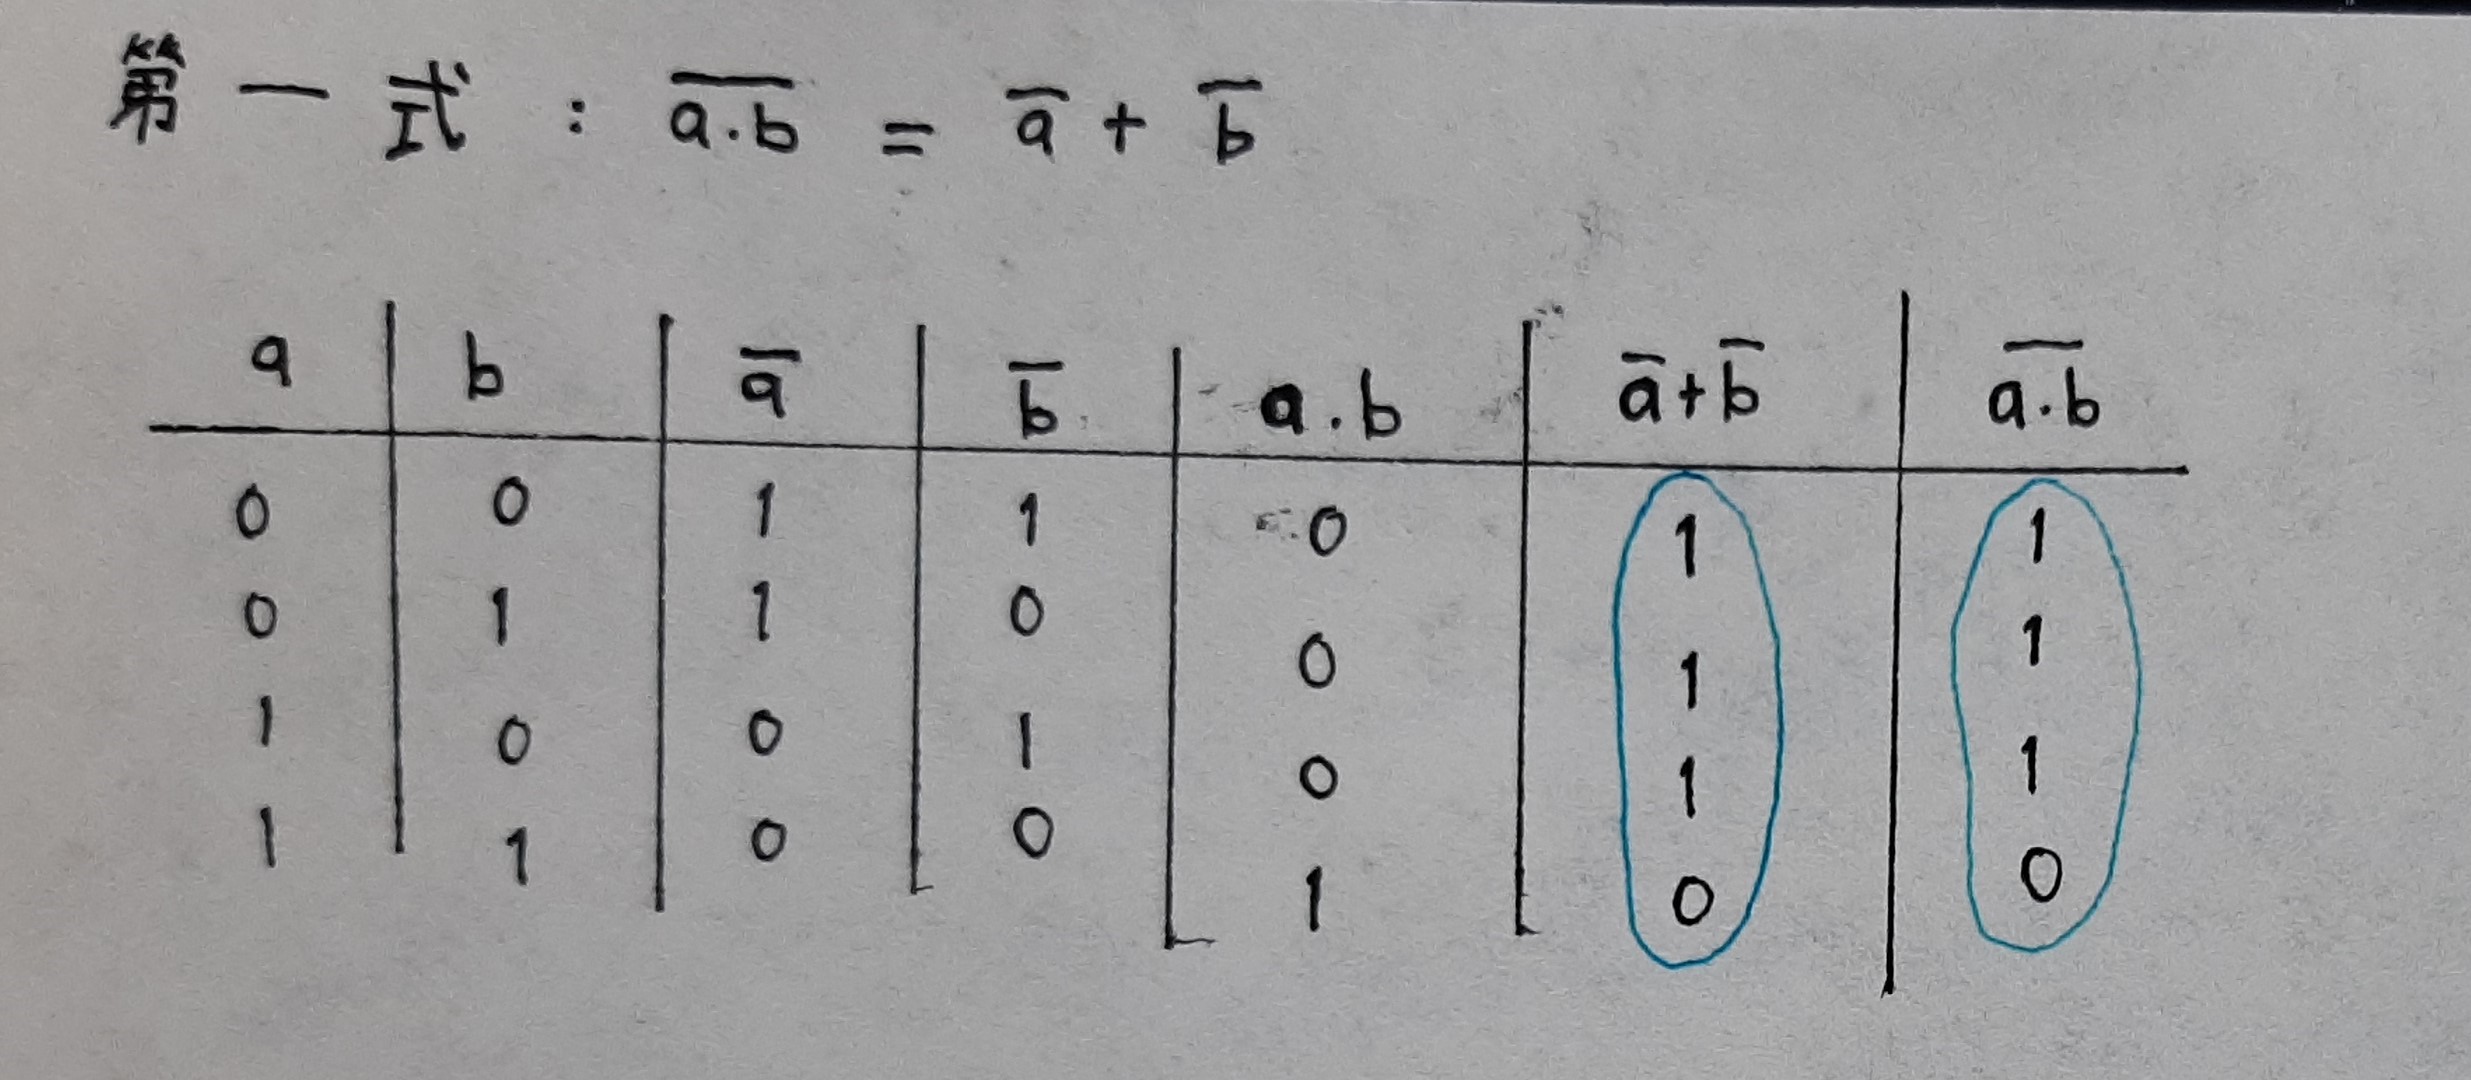 第一式 : a̅.̅b̅ = a̅ + b̅
a b a̅ b̅ a.b a̅+b̅ a̅.̅b̅
0 0 1 1 0 1 1
0 1 1 0 0 1 1
1 0 0 1 0 1 1
1 1 0 0 1 0 0